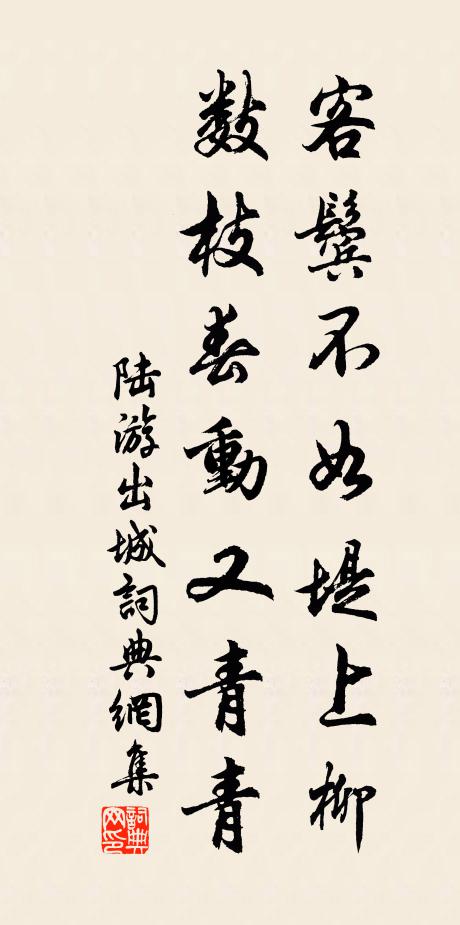 客鬓不如堤上柳
数枝春動又青青
陆游出城詞典網集
詞典网印